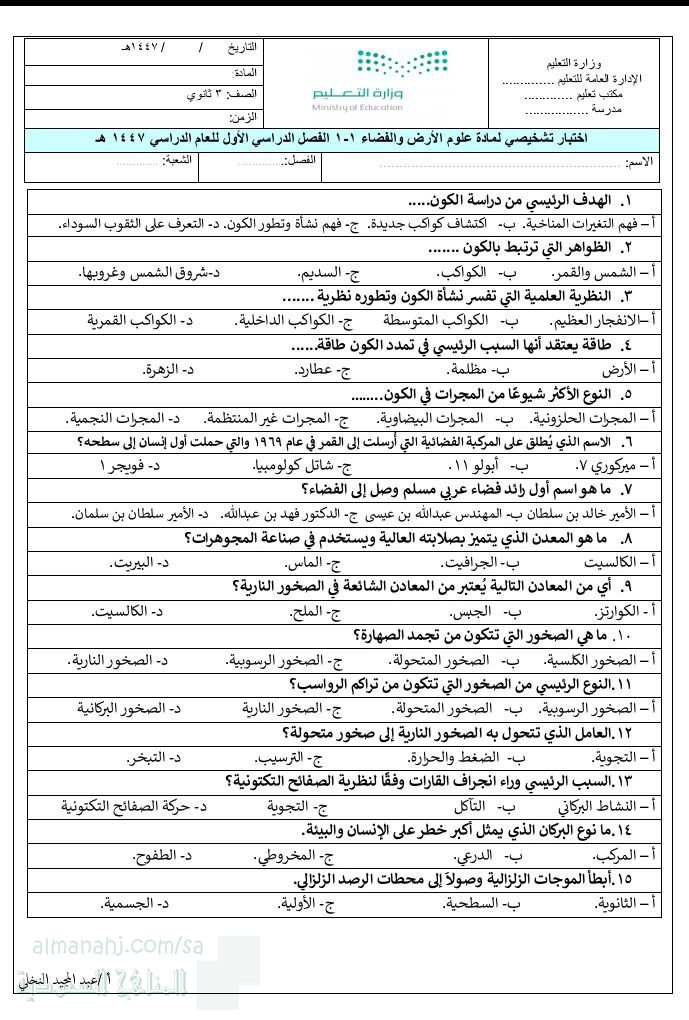 وزارة التعليم
الإدارة العامة للتعليم ..............
مكتب تعليم .............
مدرسة .................
وزارة التعليم
Ministry of Education
التاريخ / / ١٤٤٧هـ
المادة:
الصف: ٣ ثانوي
الزمن:
اختبار تشخيصي لمادة علوم الأرض والفضاء ١-١ الفصل الدراسي الأول للعام الدراسي ١٤٤٧ هـ
الاسم: ............................................................ الفصل:............. الشعبة: .............
١. الهدف الرئيسي من دراسة الكون.....
أ – فهم التغيرات المناخية. ب- اكتشاف كواكب جديدة. ج- فهم نشأة وتطور الكون. د- التعرف على الثقوب السوداء.
٢. الظواهر التي ترتبط بالكون .......
أ – الشمس والقمر. ب- الكواكب. ج- السديم. د-شروق الشمس وغروبها.
٣. النظرية العلمية التي تفسر نشأة الكون وتطوره نظرية .......
أ –الانفجار العظيم. ب- الكواكب المتوسطة ج- الكواكب الداخلية. د- الكواكب القمرية
٤. طاقة يعتقد أنها السبب الرئيسي في تمدد الكون طاقة......
أ – الأرض ب- مظلمة. ج- عطارد. د- الزهرة.
٥. النوع الأكثر شيوعًا من المجرات في الكون........
أ – المجرات الحلزونية. ب- المجرات البيضاوية. ج- المجرات غير المنتظمة. د- المجرات النجمية.
٦. الاسم الذي يُطلق على المركبة الفضائية التي أُرسلت إلى القمر في عام ١٩٦٩ والتي حملت أول إنسان إلى سطحه؟
أ – ميركوري ٧. ب- أبولو ١١. ج- شاتل كولومبيا. د- فويجر ١
٧. ما هو اسم أول رائد فضاء عربي مسلم وصل إلى الفضاء؟
أ – الأمير خالد بن سلطان ب- المهندس عبدالله بن عيسى ج- الدكتور فهد بن عبدالله. د- الأمير سلطان بن سلمان.
٨. ما هو المعدن الذي يتميز بصلابته العالية ويستخدم في صناعة المجوهرات؟
أ – الكالسيت ب- الجرافيت. ج- الماس. د- البيريت.
٩. أي من المعادن التالية يُعتبر من المعادن الشائعة في الصخور النارية؟
أ - الكوارتز. ب- الجبس. ج- الملح. د- الكالسيت.
١٠. ما هي الصخور التي تتكون من تجمد الصهارة؟
أ – الصخور الكلسية. ب- الصخور المتحولة. ج- الصخور الرسوبية. د- الصخور النارية.
١١.النوع الرئيسي من الصخور التي تتكون من تراكم الرواسب؟
أ – الصخور الرسوبية. ب- الصخور المتحولة. ج- الصخور النارية د- الصخور البركانية
١٢.العامل الذي تتحول به الصخور النارية إلى صخور متحولة؟
أ – التجوية. ب- الضغط والحرارة. ج- الترسيب. د- التبخر.
١٣.السبب الرئيسي وراء انجراف القارات وفقًا لنظرية الصفائح التكتونية؟
أ – النشاط البركاني ب- التآكل ج- التجوية د- حركة الصفائح التكتونية
١٤.ما نوع البركان الذي يمثل أكبر خطر على الإنسان والبيئة.
أ – المركب. ب- الدرعي. ج- المخروطي. د- الطفوح.
١٥.أبطأ الموجات الزلزالية وصولاً إلى محطات الرصد الزلزالي.
أ – الثانوية. ب- السطحية. ج- الأولية. د- الجسمية.
almanahj.com/sa
المناهج السعودية
أ /عبد المجيد النخلي